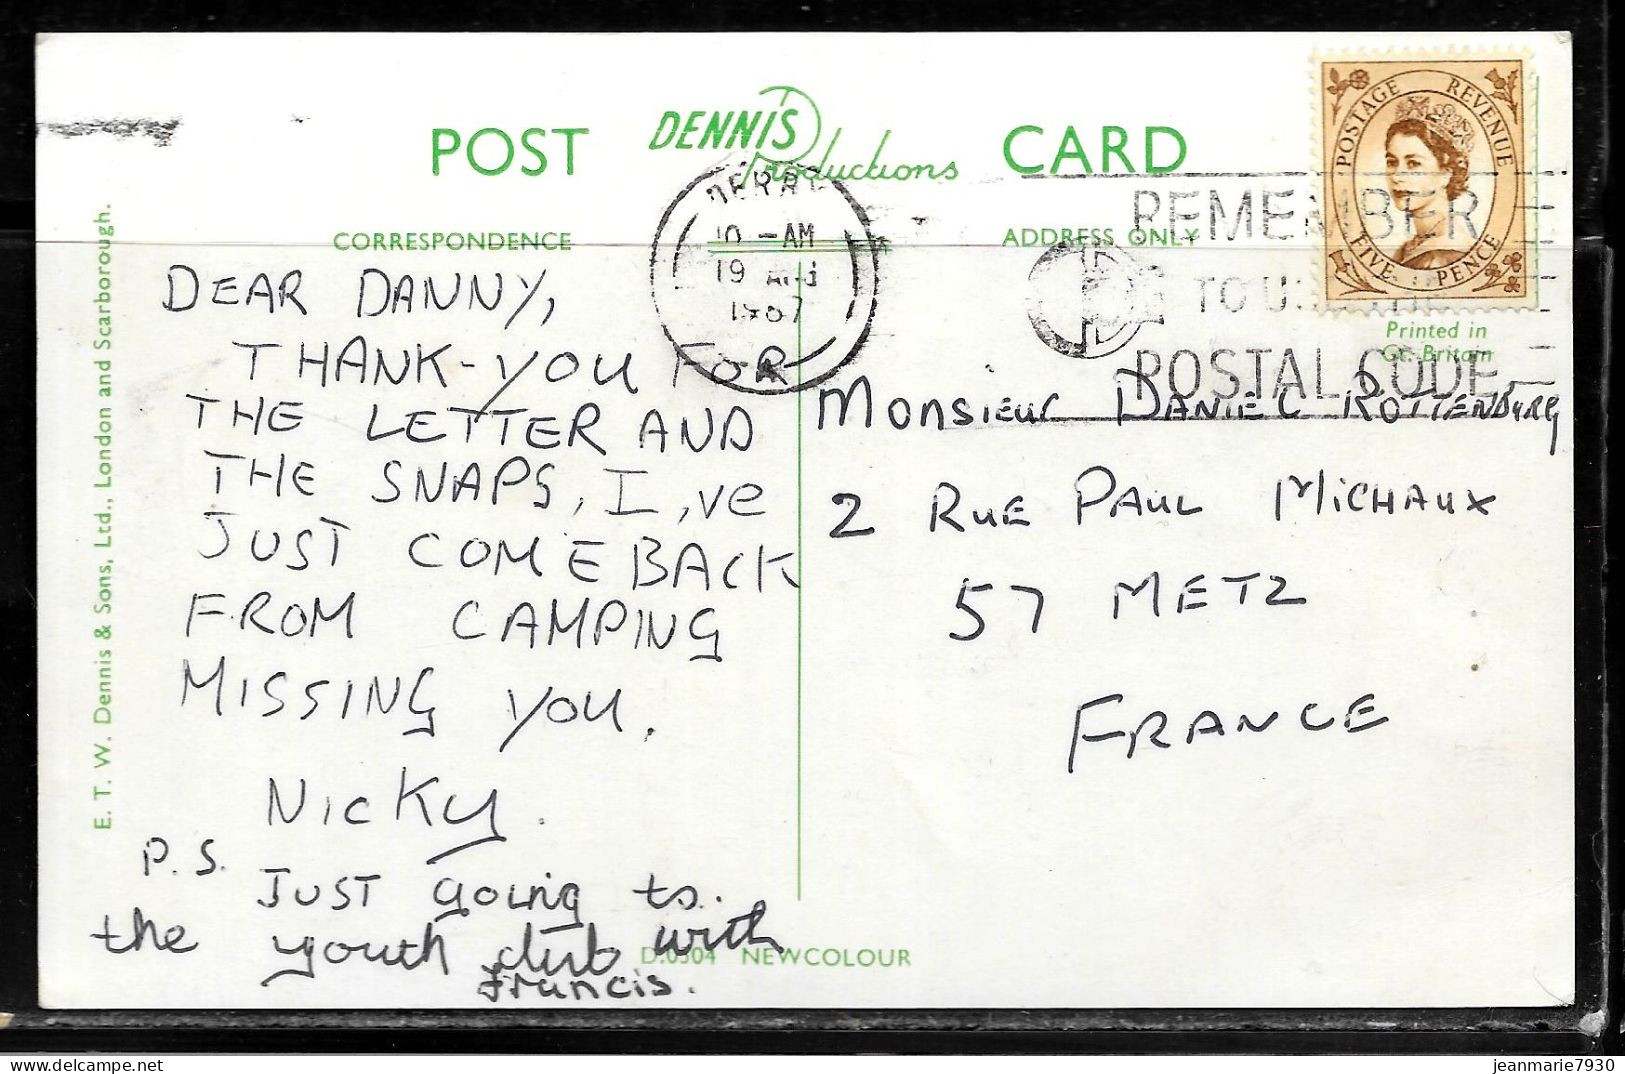 POST DENNIS Productions CARD
CORRESPONDENCE
ADDRESS ONLY
POSTAGE REVENUE
FIVE PENCE
10 - AM
19
REMEMBER
TO
POSTAL CODE
Printed in
Gt. Britain
E. T. W. Dennis & Sons, Ltd., London and Scarborough.
DEAR DANNY,
THANK-YOU FOR
THE LETTER AND
THE SNAPS, I,ve
JUST COME BACK
FROM CAMPING
MISSING YOU.
NICKY.
P.S.
JUST going to.
the youth club with
Francis.
Monsieur DANIEL ROTTENBURG
2 RUE PAUL MICHAUX
57 METZ
FRANCE
D.0304 NEWCOLOUR
jeanmarie7930